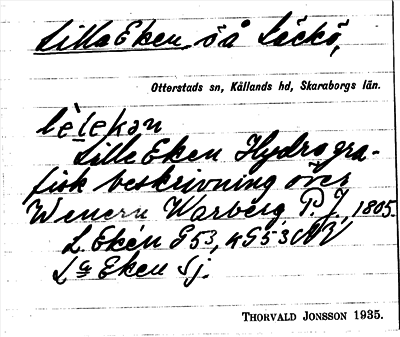 Lilla Eken, ö å Läckö,
Otterstads sn, Kållands hd, Skaraborgs län.
lèlekan
Lille Eken Hydrogra-
fisk beskrivning över
Wenern Warberg P. J., 1805.
L. Eken G 53,
La Eken Sj.
THORVALD JONSSON 1935.